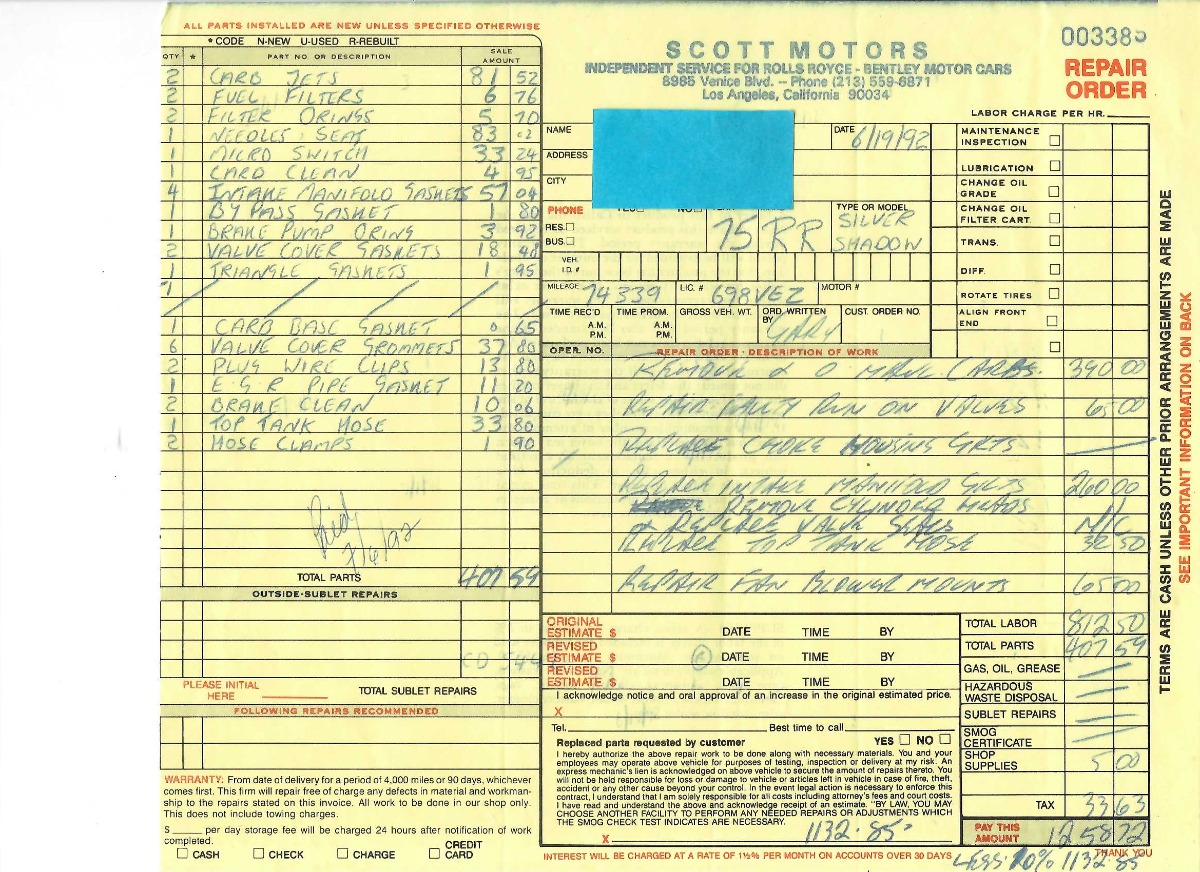 ALL PARTS INSTALLED ARE NEW UNLESS SPECIFIED OTHERWISE
* CODE N-NEW U-USED R-REBUILT
QTY * PART NO. OR DESCRIPTION SALE AMOUNT
2 CARB JETS 81 52
2 FUEL FILTERS 6 76
2 FILTER ORINGS 5 70
1 NEEDLES SEAT 83 02
1 MICRO SWITCH 33 24
1 CARB CLEAN 4 95
4 INTAKE MANIFOLD GASKETS 57 04
1 BYPASS GASKET 1 80
1 BRAKE PUMP ORING 3 92
2 VALVE COVER GASKETS 18 48
1 TRIANGLE GASKETS 1 95
1 CARB BASE GASKET 0 65
6 VALVE COVER GROMMETS 37 80
2 PLUG WIRE CLIPS 13 80
1 E.G.R PIPE GASKET 11 20
2 BRAKE CLEAN 10 06
1 TOP TANK HOSE 33 80
2 HOSE CLAMPS 1 90
Paid
7/6/92
TOTAL PARTS 407 59
OUTSIDE-SUBLET REPAIRS
PLEASE INITIAL HERE
TOTAL SUBLET REPAIRS
FOLLOWING REPAIRS RECOMMENDED
WARRANTY: From date of delivery for a period of 4,000 miles or 90 days, whichever
comes first. This firm will repair free of charge any defects in material and workman-
ship to the repairs stated on this invoice. All work to be done in our shop only.
This does not include towing charges.
$ ____ per day storage fee will be charged 24 hours after notification of work
completed.
CASH CHECK CHARGE CREDIT CARD
SCOTT MOTORS
INDEPENDENT SERVICE FOR ROLLS ROYCE - BENTLEY MOTOR CARS
8985 Venice Blvd. – Phone (213) 559-8871
Los Angeles, California 90034
00338
REPAIR
ORDER
LABOR CHARGE PER HR.
NAME
DATE 6/19/92
ADDRESS
CITY
PHONE
RES.
BUS.
75 RR
TYPE OR MODEL
SILVER
SHADOW
VEH. I.D. #
MILEAGE 74339 LIC. # 698VEZ MOTOR #
TIME REC'D A.M. P.M. TIME PROM. A.M. P.M. GROSS VEH. WT. ORD. WRITTEN BY GARY CUST. ORDER NO.
MAINTENANCE INSPECTION
LUBRICATION
CHANGE OIL GRADE
CHANGE OIL FILTER CART.
TRANS.
DIFF.
ROTATE TIRES
ALIGN FRONT END
OPER. NO. REPAIR ORDER - DESCRIPTION OF WORK
REMOVE & O HAUL CARBS. 390 00
REPAIR FAULTY RUN ON VALVES 65 00
REPLACE CHOKE HOUSING GSKTS
REPLACE INTAKE MANIFOLD GSKTS 260 00
REMOVE CYLINDER HEADS
& REPLACE VALVE SEALS N/C
REPLACE TOP TANK HOSE 32 50
REPAIR FAN BLOWER MOUNTS 65 00
ORIGINAL ESTIMATE $ DATE TIME BY
REVISED ESTIMATE $ DATE TIME BY
REVISED ESTIMATE $ DATE TIME BY
I acknowledge notice and oral approval of an increase in the original estimated price.
X
Tel. Best time to call
Replaced parts requested by customer YES NO
I hereby authorize the above repair work to be done along with necessary materials. You and your
employees may operate above vehicle for purposes of testing, inspection or delivery at my risk. An
express mechanic's lien is acknowledged on above vehicle to secure the amount of repairs thereto. You
will not be held responsible for loss or damage to vehicle or articles left in vehicle in case of fire, theft,
accident or any other cause beyond your control. In the event legal action is necessary to enforce this
contract, I understand that I am solely responsible for all costs including attorney's fees and court costs.
I have read and understand the above and acknowledge receipt of an estimate. "BY LAW, YOU MAY
CHOOSE ANOTHER FACILITY TO PERFORM ANY NEEDED REPAIRS OR ADJUSTMENTS WHICH
THE SMOG CHECK TEST INDICATES ARE NECESSARY.
X 1132.85
TOTAL LABOR 812 50
TOTAL PARTS 407 59
GAS, OIL, GREASE
HAZARDOUS WASTE DISPOSAL
SUBLET REPAIRS
SMOG CERTIFICATE
SHOP SUPPLIES 5 00
TAX 33 63
PAY THIS AMOUNT 1258 72
INTEREST WILL BE CHARGED AT A RATE OF 1½% PER MONTH ON ACCOUNTS OVER 30 DAYS
THANK YOU
LESS 10% 1132.85
TERMS ARE CASH UNLESS OTHER PRIOR ARRANGEMENTS ARE MADE
SEE IMPORTANT INFORMATION ON BACK